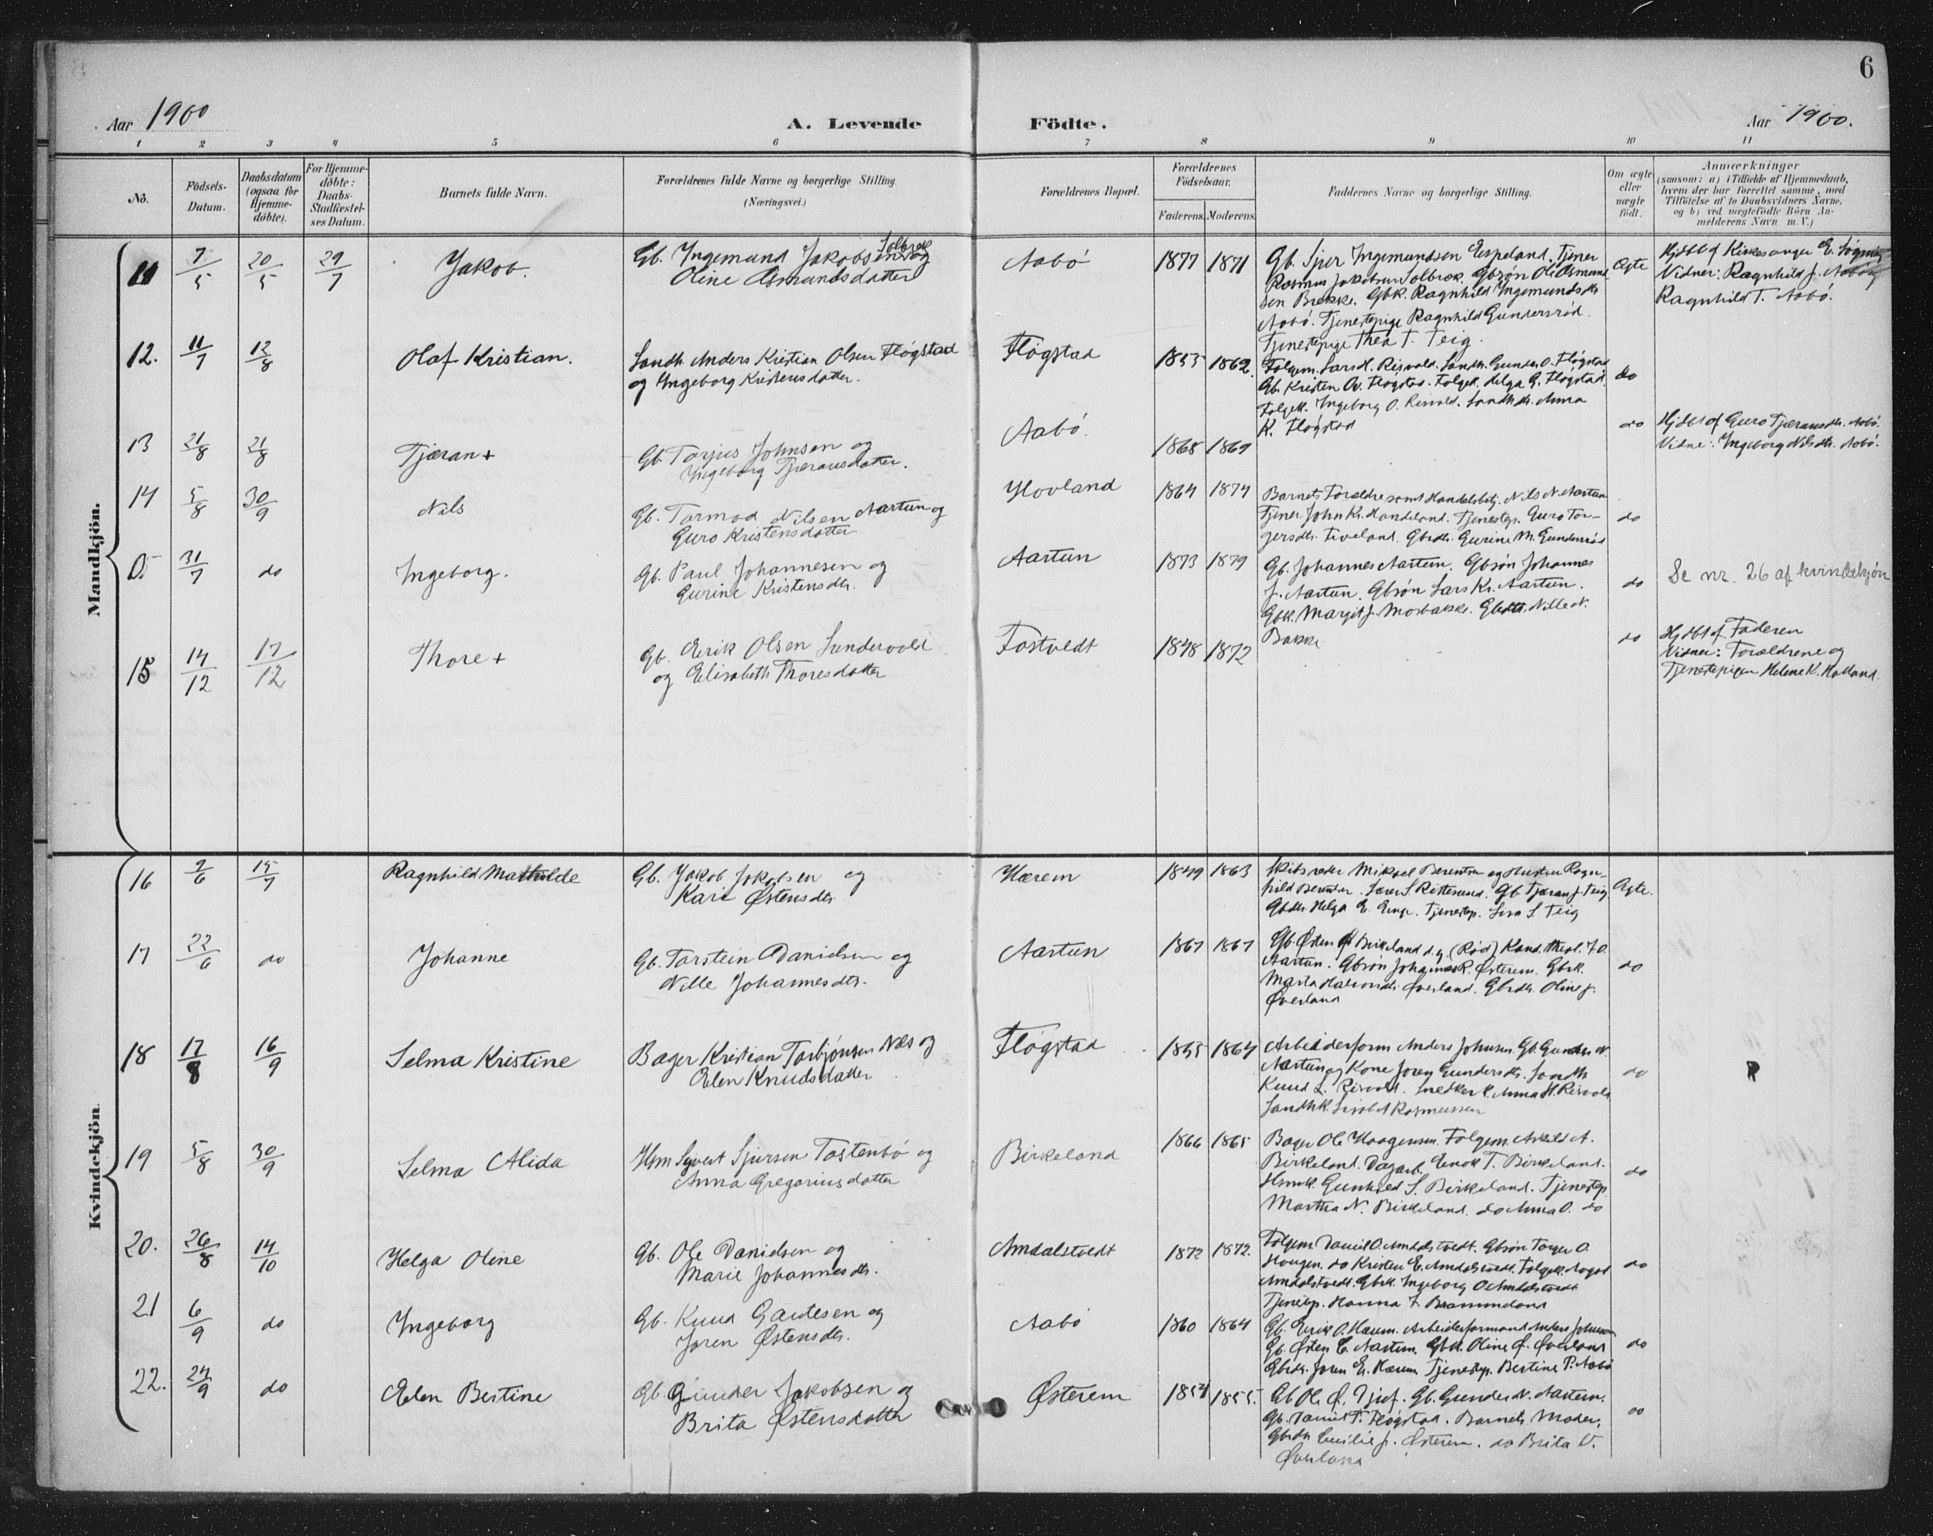 6
Aar 1900
A. Levende
Födte.
Aar 1900.
1 2 3 4 5 6 7 8 9 10 11
No.
Födsels-
Datum.
Daabsdatum
(ogsaa for
Hjemme-
döbte).
For Hjemme-
döbte:
Daabs-
Stadfæstel-
ses Datum.
Barnets fulde Navn.
Forældrenes fulde Navne og borgerlige Stilling.
(Næringsvei.)
Forældrenes Bopæl.
Forældrenes
Födselsaar.
Faderens. Moderens.
Faddernes Navne og borgerlige Stilling.
Om ægte
eller
uægte
födt.
Anmærkninger
(saasom: a) i Tilfælde af Hjemmedaab,
hvem der har forrettet samme, med
Tilföielse af to Daabsvidners Navne,
og b) ved uægtefödte Börn An-
melderens Navn m. V.)
Mandkjön.
11 7/5 20/5 29/7 Jakob.
Gb. Ingemund Jakobsen Solbræk og
Oline Asmundsdatter
Aabö 1877 1871
Gb. Sjur Ingemundsen Espeland. Tjener
Rasmus Jakobsen Solbræk. Gbsön Ole Asmund
sen Brekke. Gbk. Ragnhild Ingemundsdtr
Aabö. Tjenestepige Ragnhild Gundersröd.
Tjenestepige Thea T. Teig.
Ægte
Hjdbt af Kirkesanger E.
Vidner: Ragnhild J. Aabö og
Ragnhild T. Aabö.
12. 11/7 12/8 Olaf Kristian.
Sandh. Anders Kristian Olsen Flögstad
og Ingeborg Kristensdatter.
Flögstad 1855 1862.
Folgem. Lars L. Risvold. Landh. Gunder O. Flögstad
Gb. Kristen Flögstad. Folgek. Helga G. Flögstad.
Folgek. Ingeborg O. Risvold. Anna
K. Flögstad
do
13 21/8 21/8 Tjæran +
Gb. Torjus Johnsen og
Ingeborg Tjæransdatter.
Aabö. 1868 1869
do
Hjdbt af Guro Tjæransdtr. Aabö.
Vidne: Ingeborg Nilsdtr. Aabö.
14 5/8 30/9 Nils
Gb. Tormod Nilsen Aartun og
Guro Kristensdatter.
Hovland 1864 1874
Barnets Forældre samt Handelsbetj. Nils N. Aartun
Tjener John Kr. Handeland. Tjenestep. Guro Tor-
gersdtr. Tveland. Gbrdtr. Gurine M. Gundersröd
do
0. 31/7 do Ingeborg.
Gb. Paul Johannesen og
Gurine Kristensdtr.
Aartun 1873 1879
Gb. Johannes Aartun. Gbsön Johannes
J. Aartun. Gbsön Lars Kr. Aartun.
Gbk. Margit J. Mosbakke. Gbdtr. Nille N.
Bakke
do
Se nr. 26 af kvindekjön
15 14/12 17/12 Thore +
Gb. Eerik Olsen Sundervold
og Elisabeth Thoresdatter
Tostvedt 1848 1872
do
Hjdbt af. Faderen
Vidner: Forældrene og
Tjenestepigen Helene K. Holland.
Kvindekjön.
16 2/6 15/7 Ragnhild Mathilde
Gb. Jakob Jakobsen og
Kari Østensdtr.
Hærem 1849 1863
Skibsreder Mikael Berentsen og Hustru Ragn-
hild Berentsen. Gb. Tjæran J. Teig
Gbdtr. Helga E. Tjenestep. S. Teig
Ægte.
17 22/6 do Johanne
Gb. Torstein Danielsen og
Nille Johannesdtr.
Aartun 1867 1867
Gb. Østen Birkeland d.y. (Röd) Kand. theol. J. O.
Aartun. Gbsön Johannes R. Østerem. Gbk.
Marta Överland. Gbrdtr. Oline J.
Överland
do
18 17/8 16/9 Selma Kristine
Bager Kristian Torbjönsen Næs og
Elen Knudsdatter
Flögstad 1855 1864
Arbeiderform Anders Johnsen. Gb. Gunder N.
Aartun og Kone Joren Gundersdtr.
Knud L. Risvold. Snedker Anna H. Risvold
Sandhk. Rasmussen
do R
19 5/8 30/9 Selma Alida
Hm Syvert Sjursen Tostenbö og
Anna Gregoriusdatter
Birkeland 1866 1865
Bager Ole Haagensen. Folgem. A.
Birkeland. Dagarb. Enok T. Birkeland.
Hmk. Gunhild S. Birkeland. Tjenestep
Martha N. Birkeland. do Anna O. do
do
20. 26/8 14/10 Helga Oline
Gb. Ole Danielsen og
Marie Johannesdtr.
Amdalstvedt 1872 1872.
Folgem Daniel O. Amdalstvedt. Gbsön Torger O.
Haugen. do Kristen E. Amdalstvedt. Folgek. Aagot
Amdalstvedt. Gbk. Ingeborg O. Amdalstvedt
Tjenestep. Hanna
do
21 6/9 do Ingeborg
Gb. Knud Gautesen og
Joren Østensdtr.
Aabö 1860 1864
Gb. Eerik O. Hærem. Arbeiderformand Anders Johnsen
Gb. Østen E. Aartun. Gbdt. Oline Ø. Överland
Gbrdtr. Joren E. Hærem Tjenestep. Bertine P. Aabö
do
22. 24/9 do Elen Bertine
Gb. Gunder Jakobsen og
Brita Østensdatter
Østerem 1854 1855.
Gb Ole Ø. Gb. Gunder N. Aartun.
Gb. Daniel T. Flögstad. Barnets Moder,
Gbrdtr Emilie J. Østerem. do Brita
Överland
do